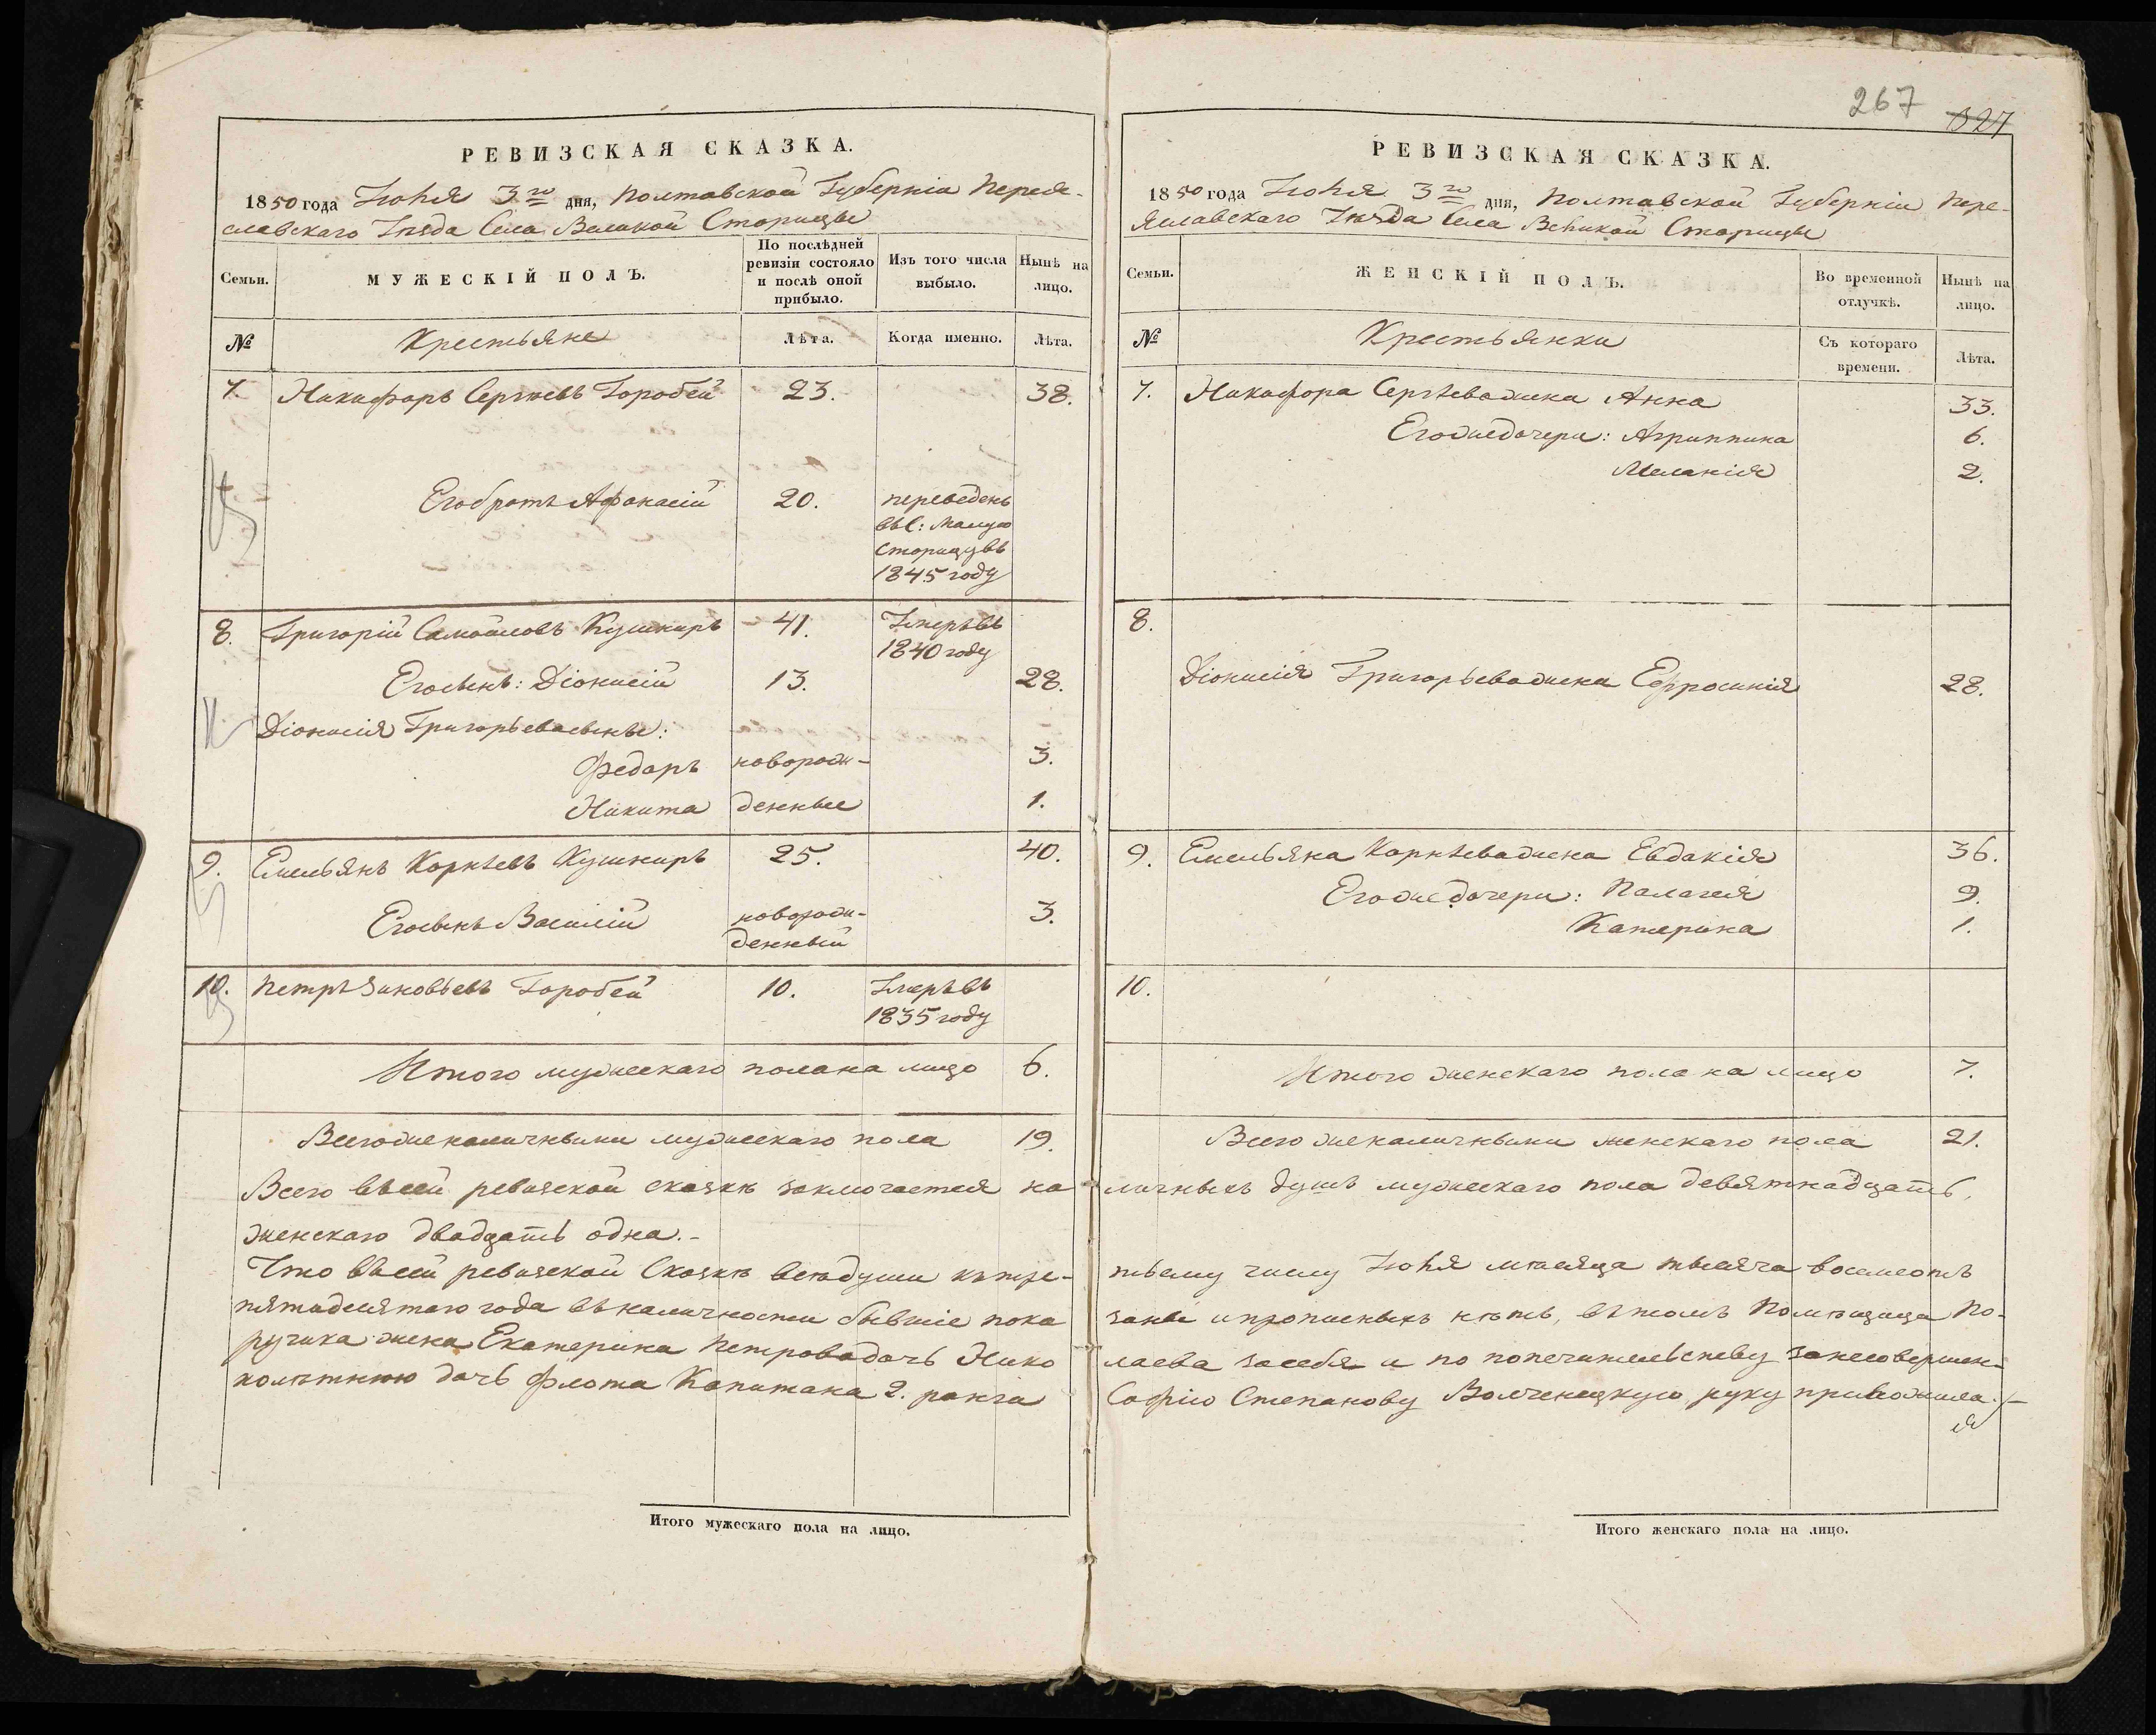 267 827
РЕВИЗСКАЯ СКАЗКА.
1850 года Іюня 3го дня, Полтавской Губерніи Перея-
славскаго Уѣзда Села Великой Старицы
Семьи.
МУЖЕСКІЙ ПОЛЪ.
По послѣдней ревизіи состояло и послѣ оной прибыло.
Изъ того числа выбыло.
Нынѣ на лицо.
№ Крестьяне Лѣта. Когда именно. Лѣта.
7. Никифоръ Сергѣевъ Горобей 23. 38.
Его братъ Афанасій 20. переведенъ
въ С: Малую
Старицу въ
1845 году
8. Григорій Самойловъ Кушниръ 41. Умеръ въ
1840 году
Его сынъ: Діонисій 13. 28.
Діонисія Григорьева сыны:
Федоръ новорож- 3.
Никита денные 1.
9. Емельянъ Корнѣевъ Кушниръ 25. 40.
Его сынъ Василій новорож- 3.
денный
10. Петръ Зиновьевъ Горобей 10. Умеръ въ
1835 году
Итого мужескаго пола на лицо 6.
Всего же наличными мужескаго пола 19.
Всего въ сей ревизской сказкѣ заключается на
женскаго двадцать одна.-
Что въ сей ревизской Сказкѣ всѣ души къ тре-
пятидесятаго года въ наличности бывшіе пока
ручика жена Екатерина Петрова дочь Нико
нолѣтнюю дочь Флота Капитана 2. ранга
Итого мужескаго пола на лицо.
РЕВИЗСКАЯ СКАЗКА.
1850 года Іюня 3го дня, Полтавской Губерніи Пере-
яславскаго Уѣзда Села Великой Старицы
Семьи.
ЖЕНСКІЙ ПОЛЪ.
Во временной отлучкѣ.
Нынѣ на лицо.
№ Крестьянки Съ котораго времени. Лѣта.
7. Никифора Сергѣева жена Анна 33.
Его же дочери: Агриппина 6.
Меланія 2.
8.
Діонисія Григорьева жена Ефросинія 28.
9. Емельяна Корнѣева жена Евдакія 36.
Его же дочери: Палагея 9.
Катерина 1.
10.
Итого женскаго пола на лицо 7.
Всего же наличными женскаго пола 21.
личныхъ душъ мужескаго пола девятнадцать,
тьему числу Іюня мѣсяца тысяча восемсотъ
заны и прописныхъ нѣтъ, въ томъ Помѣщица По-
лаева за себя и по попечительству за несовершен-
Софію Степанову Волченецкую руку приложила.
Итого женскаго пола на лицо.